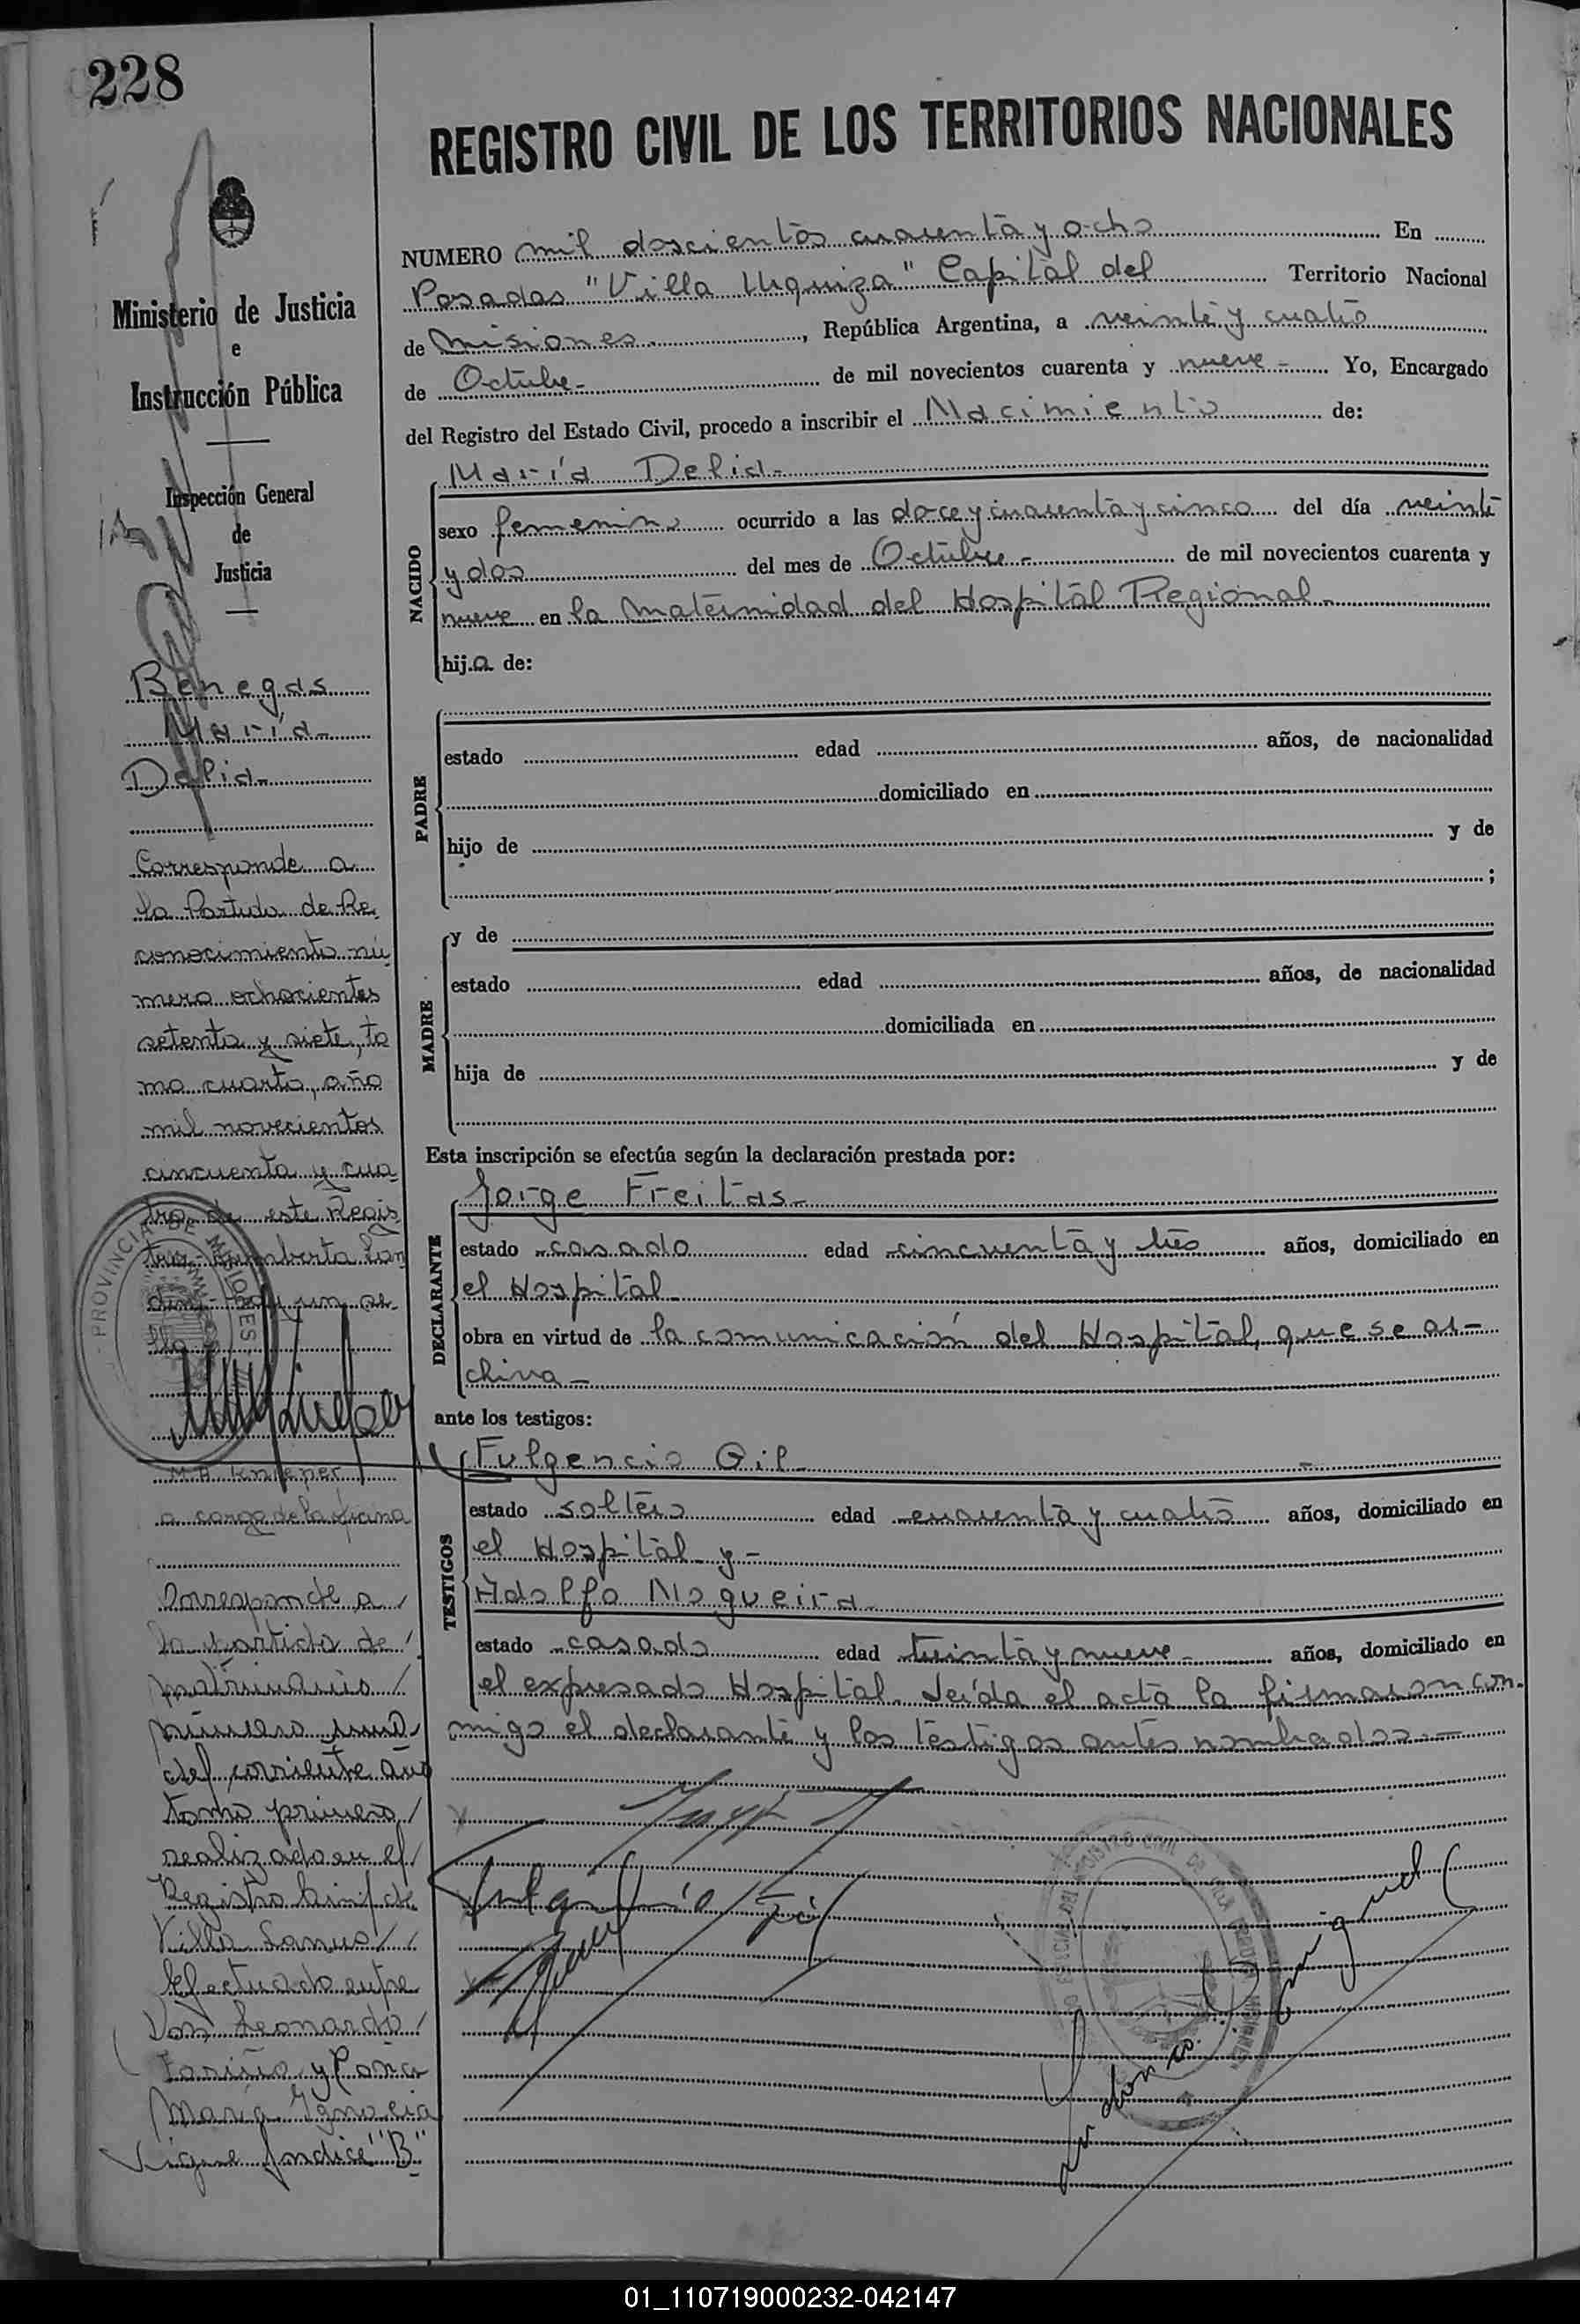 228
REGISTRO CIVIL DE LOS TERRITORIOS NACIONALES
Ministerio de Justicia
e
Instrucción Pública
Inspección General
de
Justicia
Benegas
María
Delia
Corresponde a
la Partida de Re
conocimiento nú
mero ochocientos
setenta y siete, to
mo cuarto, año
mil novecientos
cincuenta y cua
tro de este Regis
tro - Humberto
hay un se
llo
PROVINCIA DE MISIONES
M. A. Knieper
a cargo de la oficina
Corresponde a
la partida de
matrimonio
número
del corriente año
tomo primero
realizado en el
Registro Civil de
Villa Lanus
Efectuado entre
Leonardo
Fariña y
María Ignacia
Sigue Indice "B"
NUMERO mil doscientos cuarenta y ocho En
Posadas "Villa Urquiza" Capital del Territorio Nacional
de Misiones , República Argentina, a veinte y cuatro
de Octubre - de mil novecientos cuarenta y nueve - Yo, Encargado
del Registro del Estado Civil, procedo a inscribir el Nacimiento de:
María Delia -
NACIDO
sexo femenino ocurrido a las doce y cuarenta y cinco del día veinte
y dos del mes de Octubre - de mil novecientos cuarenta y
nueve en la Maternidad del Hospital Regional -
hija de:
PADRE
estado edad años, de nacionalidad
domiciliado en
hijo de y de
;
MADRE
y de
estado edad años, de nacionalidad
domiciliada en
hija de y de
Esta inscripción se efectúa según la declaración prestada por:
DECLARANTE
Jorge Freitas -
estado casado edad cincuenta y tres años, domiciliado en
el Hospital
obra en virtud de la comunicación del Hospital, que se ar-
chiva -
ante los testigos:
TESTIGOS
Fulgencio Gil -
estado soltero edad cuarenta y cuatro años, domiciliado en
el Hospital y -
Adolfo Nogueira
estado casado edad treinta y nueve - años, domiciliado en
el expresado Hospital. Leída el acta la firmaron con-
migo el declarante y los testigos antes nombrados. -
Fulgencio Gil
01_110719000232-042147